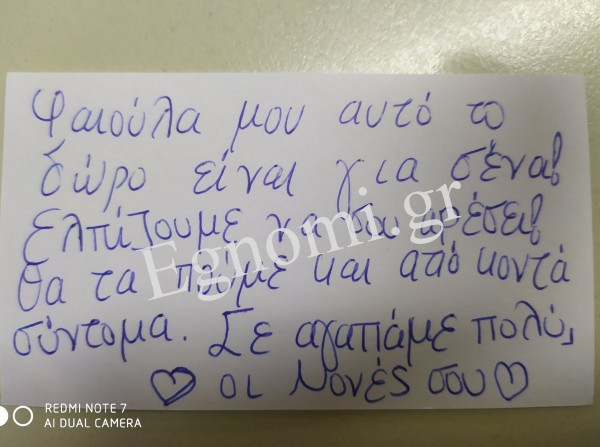 Φαιούλα μου αυτό το
δώρο είναι για σένα!
Ελπίζουμε να σου αρέσει!
Θα τα πούμε και από κοντά
σύντομα. Σε αγαπάμε πολύ,
♡ οι Νονές σου ♡
Egnomi.gr
REDMI NOTE 7
AI DUAL CAMERA